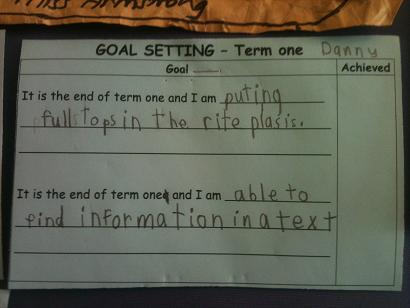 Miss Armstrong
GOAL SETTING - Term one Danny
Goal Achieved
It is the end of term one and I am puting
full stops in the rite plasis.
It is the end of term one and I am able to
find information in a text